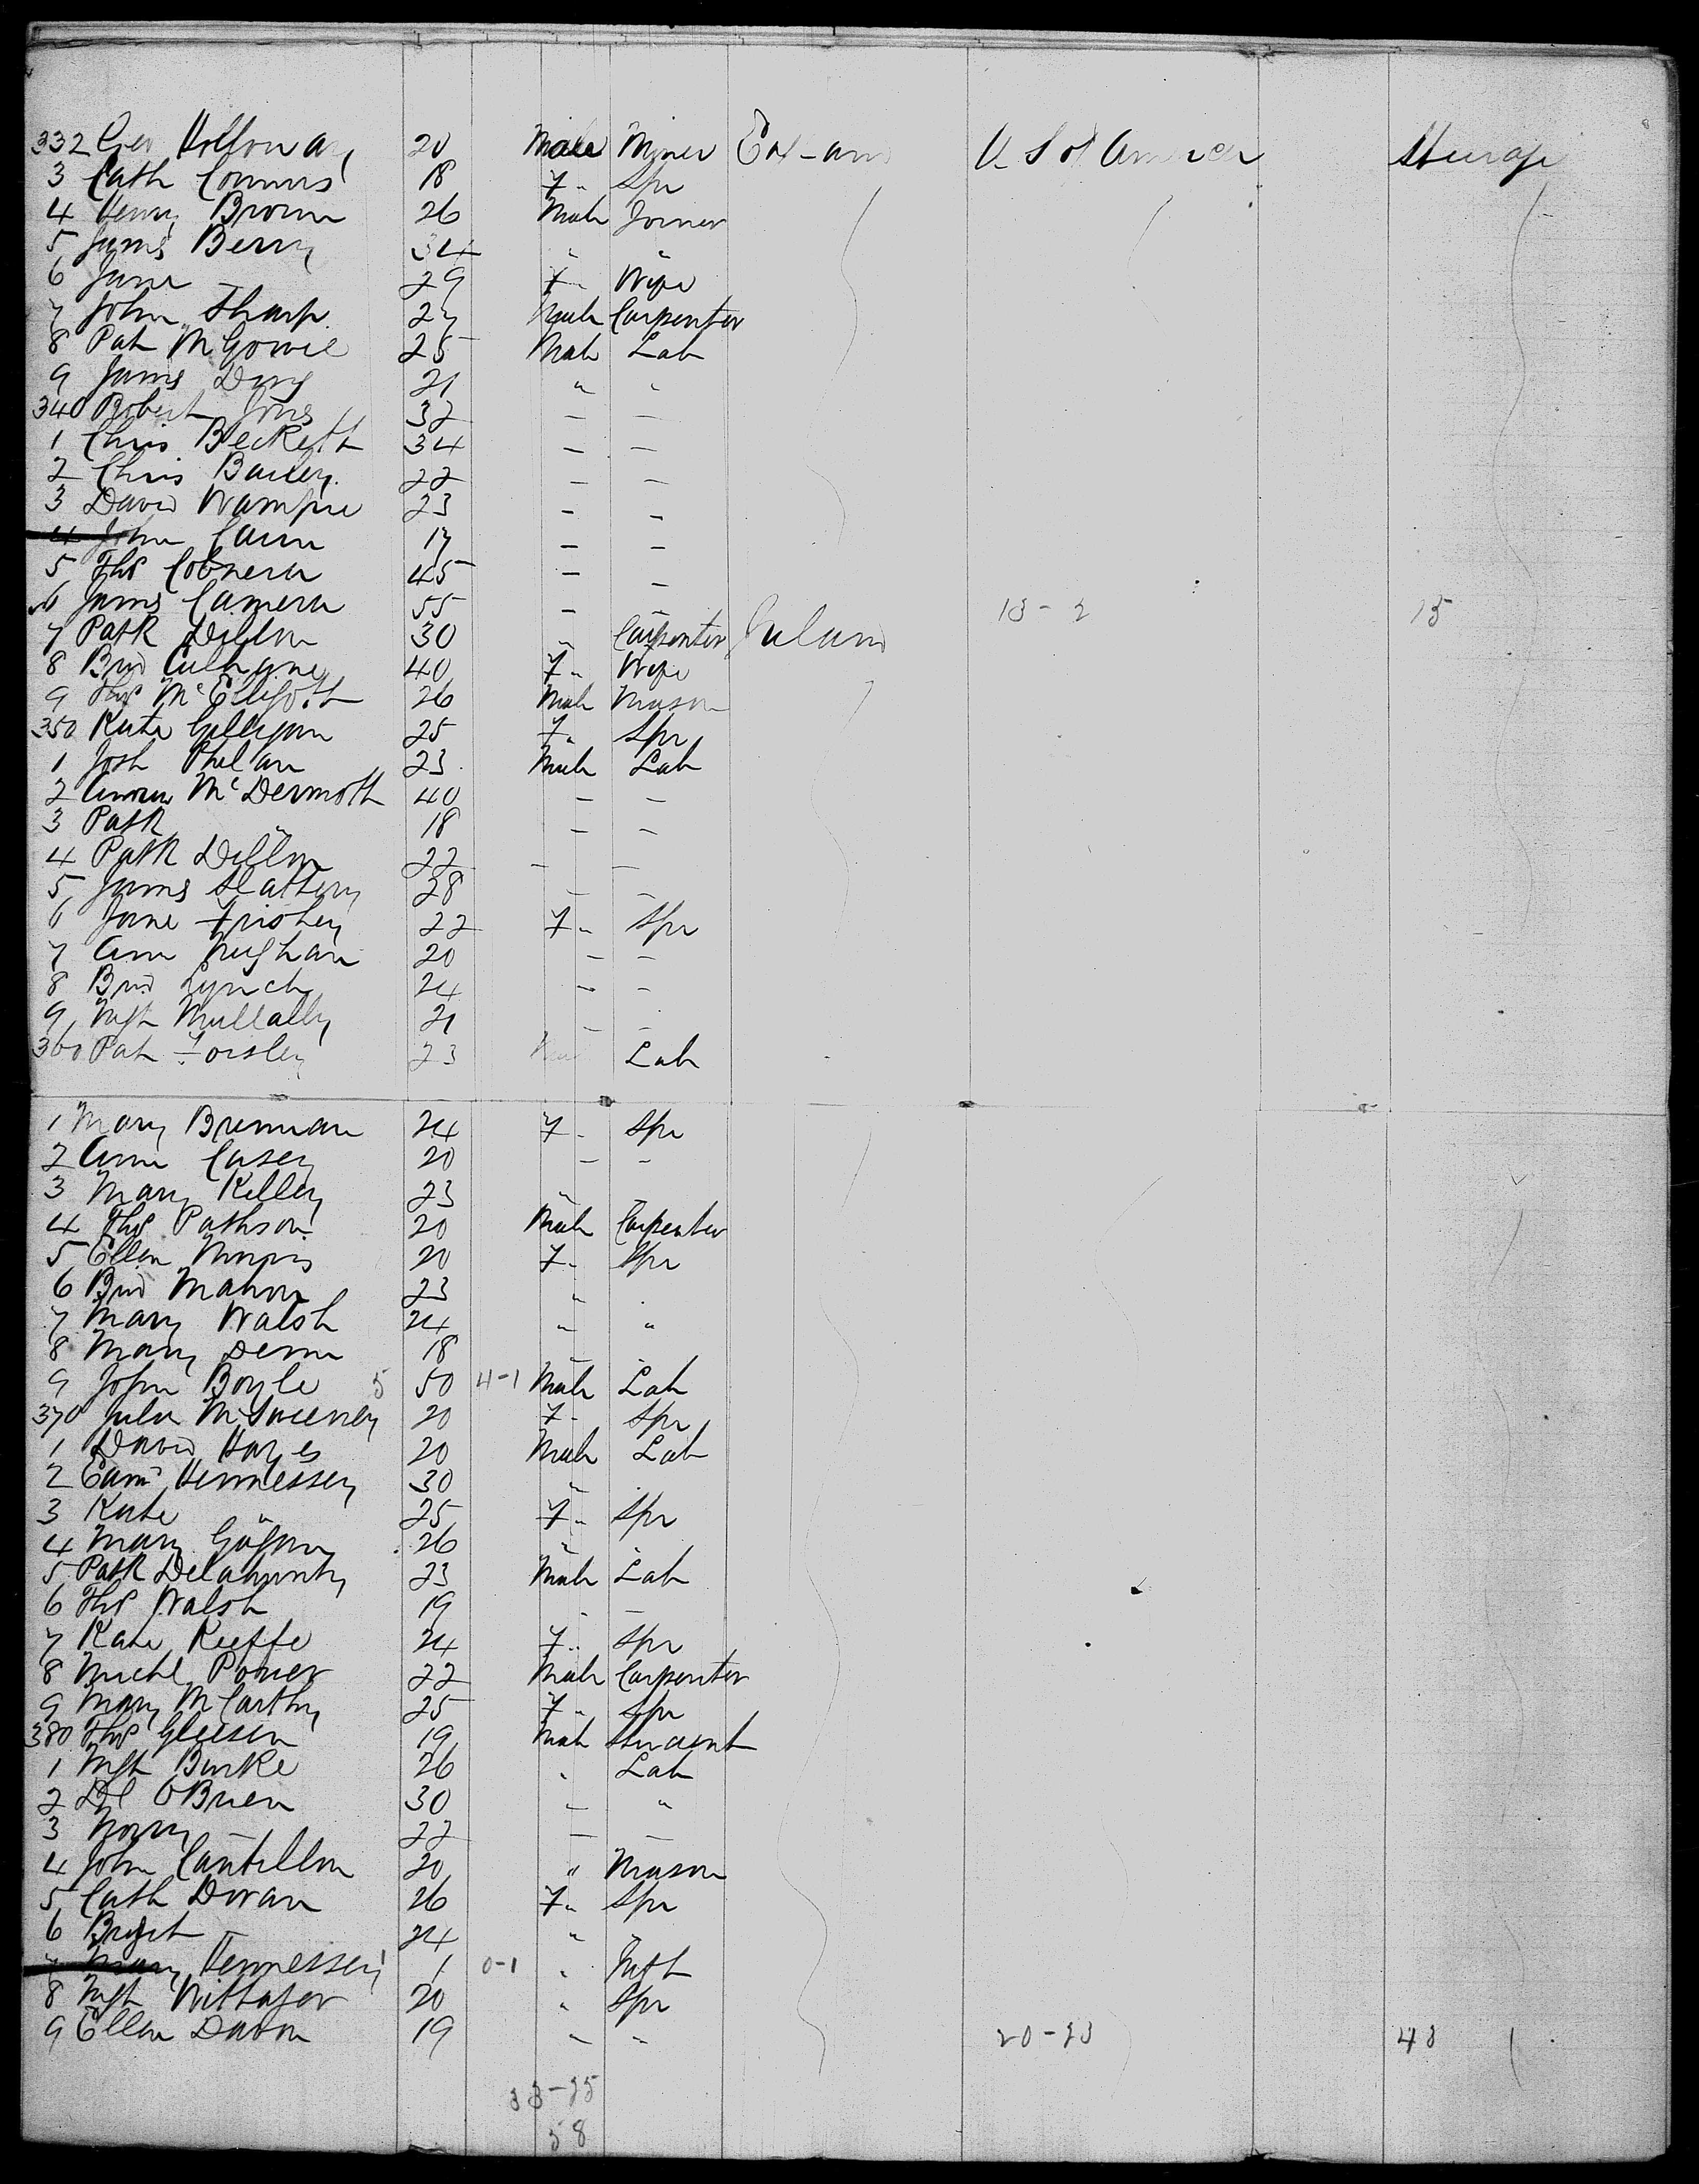 332 Geo Holloway 20 Male Miner England U S of America Steerage
3 Cath Connors 18 F " Spr
4 Henry Brown 26 Male Joiner
5 James Berry 34 " "
6 Jane — 29 F " Wife
7 John Sharp 27 Male Carpenter
8 Pat McGowie 25 Male Lab
9 James 21 " "
340 Robert Jones 32 — —
1 Chris Beckett 34 — —
2 Chris Bailey 22 — —
3 David 23 — —
4 John Cann 17 — —
5 Thos 45 — —
6 James Camern 55 — — 13 - 2 15
7 Patk Dillon 30 " Carpenter Ireland
8 Brid Culhane 40 F " Wife
9 Thos McElligott 26 Male Mason
350 Kate Gilligan 25 F " Spr
1 Josh Phelan 23 Male Lab
2 Andrew McDermott 40 — —
3 Patk " 18 — —
4 Patk Dillon 22 — —
5 James Slattery 28 — —
6 Jane 22 F " Spr
7 Ann 20 — —
8 Brid Lynch 24 — —
9 Mgt Mullally 21 — —
360 Pat 23 Male Lab
1 Mary Brennan 24 F " Spr
2 Anne Casey 20 — —
3 Mary Killey 23 " "
4 Thos 20 Male Carpenter
5 Ellen 20 F " Spr
6 Brid Mahon 23 " "
7 Mary Walsh 24 " "
8 Mary 18 — "
9 John Boyle 5 50 4-1 Male Lab
370 Julia McSweeney 20 F " Spr
1 David Hayes 20 Male Lab
2 Edmd Hennessey 30 " "
3 Kate " 25 F " Spr
4 Mary 26 " "
5 Patk Delahunty 23 Male Lab
6 Thos Walsh 19 " —
7 Kate Keeffe 24 F " Spr
8 Michl Power 22 Male Carpenter
9 Mary McCarthy 25 F " Spr
380 Thos Gleeson 19 Male Servant
1 Mgt Burke 26 " Lab
2 Dl OBrien 30 — "
3 — 22 — —
4 John Cantillon 20 " Mason
5 Cath Doran 26 F " Spr
6 Bridget — 24 " "
7 Mary Hennessey 1 0-1 " Inft
8 Mgt 20 " Spr
9 Ellen 19 — " 20-23 43
33-25
58